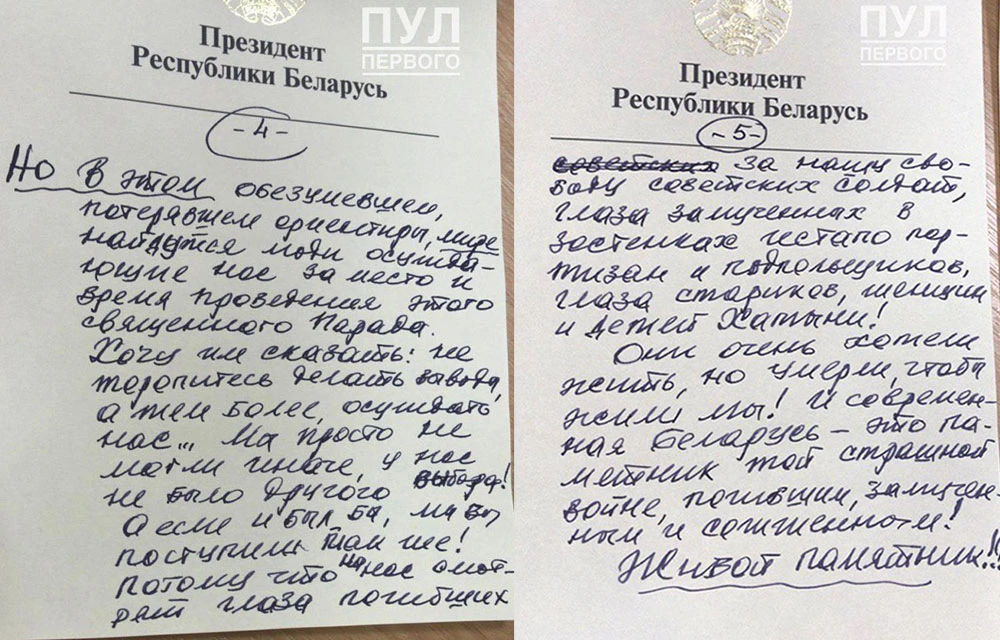 ПУЛ
ПЕРВОГО
Президент
Республики Беларусь
-4-
Но в этом обезумевшем,
потерявшем ориентиры, мире
найдутся люди осужда-
ющие нас за место и
время проведения этого
священного Парада.
Хочу им сказать: не
торопитесь делать вывода,
а тем более, осуждать
нас... Мы просто не
могли иначе, у нас
не было другого выбора!
А если и был бы, мы бы
поступили так же!
Потому что на нас смот-
рят глаза погибших
ПУЛ
ПЕРВОГО
Президент
Республики Беларусь
-5-
советских за нашу сво-
боду советских солдат,
глаза замученных в
застенках гестапо пар-
тизан и подпольщиков,
глаза стариков, женщин
и детей Хатыни!
Они очень хотели
жить, но умерли, чтобы
жили мы! И современ-
ная Беларусь – это па-
мятник той страшной
войне, погибшим, замучен-
ным и сожженным!
Живой памятник!!!